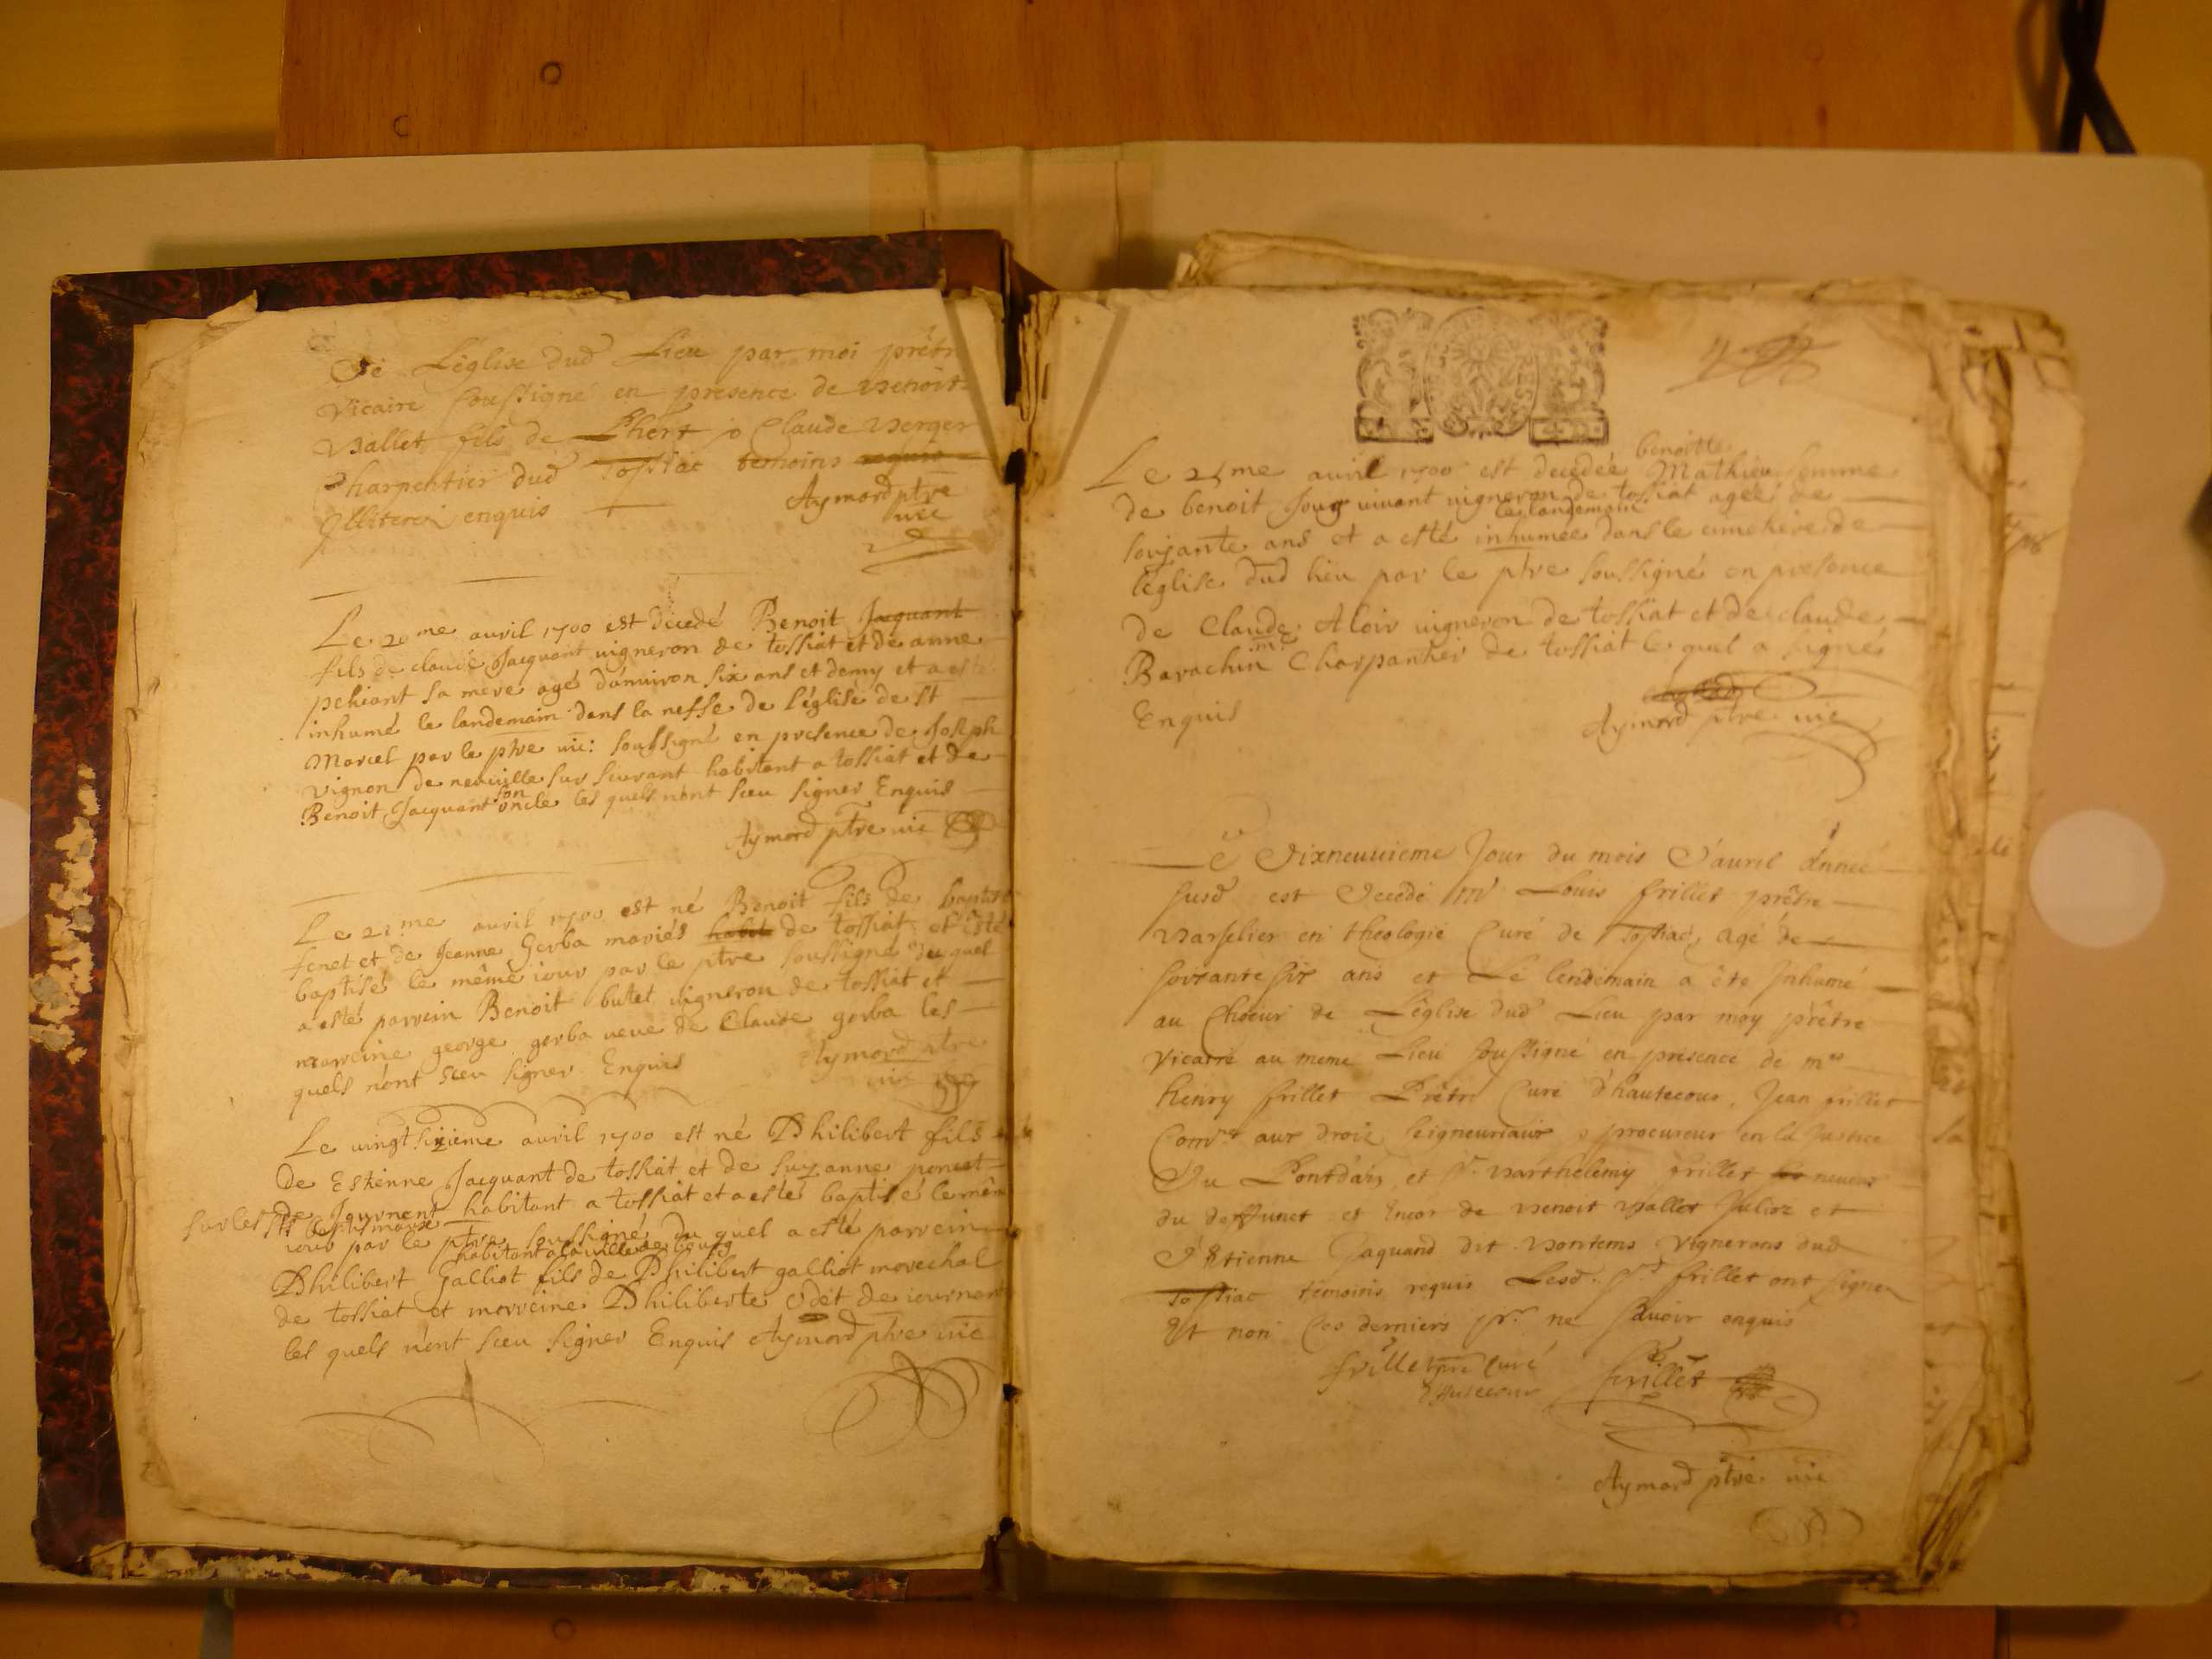 De Léglise dud Lieu par moi prêtr
Vicaire soussigné en presence de Benoit
Vallet fils de Phert & Claude Verger
Charpentier dud Tossiac temoins requis
Illiterez enquis
Aymard ptre
vic
Le 20me avril 1700 est décedé Benoit Jacquant
fils de claude Jacquant vigneron de tossiat et de anne
pchiant sa mere agé d'anuiron six ans et demy et a esté
inhumé le landemain dans la neffe de l'église de st
Marcel par le ptre vic: soussigné en presence de Joseph
vignon de neuville sur surant habitant a tossiat et de
Benoit Jacquant son oncle les quels n'ont sceu signer Enquis
Aymard ptre vic
Le 21me avril 1700 est né Benoit fils de baptiste
fenet et de Jeanne Gerba mariés habit de tossiat et esté
baptisé le même iour par le ptre soussigné du quel
a esté parrein Benoit butet vigneron de tossiat et
marreine george gerba veve de Claude gerba les
quels n'ont sceu signer Enquis Aymard ptre
vic
Le vingt sixieme avril 1700 est né Philibert fils
de Estienne Jacquant de tossiat et de suzanne poncet
de Journent habitant a tossiat et a esté baptisé le même
sur les fts baptismaux
iour par le ptre soussigné du quel a esté parrein
habitant a la ville de bourg
Philibert Galliot fils de Philibert galliot marechal
de tossiat et marreine Philiberte Odet de iournent
les quels n'ont sceu signer Enquis Aymard ptre vic
Le 25me avril 1700 est decedée benoitte Mathieu femme
de benoit Joux vivant vigneron de tossiat agée de
soixante ans et a esté le landemain inhumée dans le cimetiere de
l'église dud lieu par le ptre soussigné en presence
de Claude Aloir vigneron de tossiat et de claude
Barachin me Charpantier de tossiat le quel a signé
Enquis
Aymard ptre vic
Le Dixneuuieme Jour du mois D'auril Année
susd est Decedé mr Louis frillet prêtre
Barselier en theologie Curé de Tossiac, agé de
soixante six ans et Le lendemain a été Inhumé
au Choeur de L'église dud Lieu par moy prêtre
Vicaire au meme Lieu soussigné en presence de mre
henry frillet Prêtre Curé d'hautecour, Jean frillet
Comre aux drois seigneuriaux & procureur en la Justice
Du Pontdain, et sr Barthelemy frillet neveux
du deffunct et Encor de Benoit Vallet Julioz et
D'Etienne Jaquand dit Bontems Vignerons dud
Tossiac temoins requis Lesd. srs frillet ont signez
Et non Ces derniers pr. ne sauoir enquis
frillet ptre Curé
d'hautecour
frillet
Aymard ptre vic